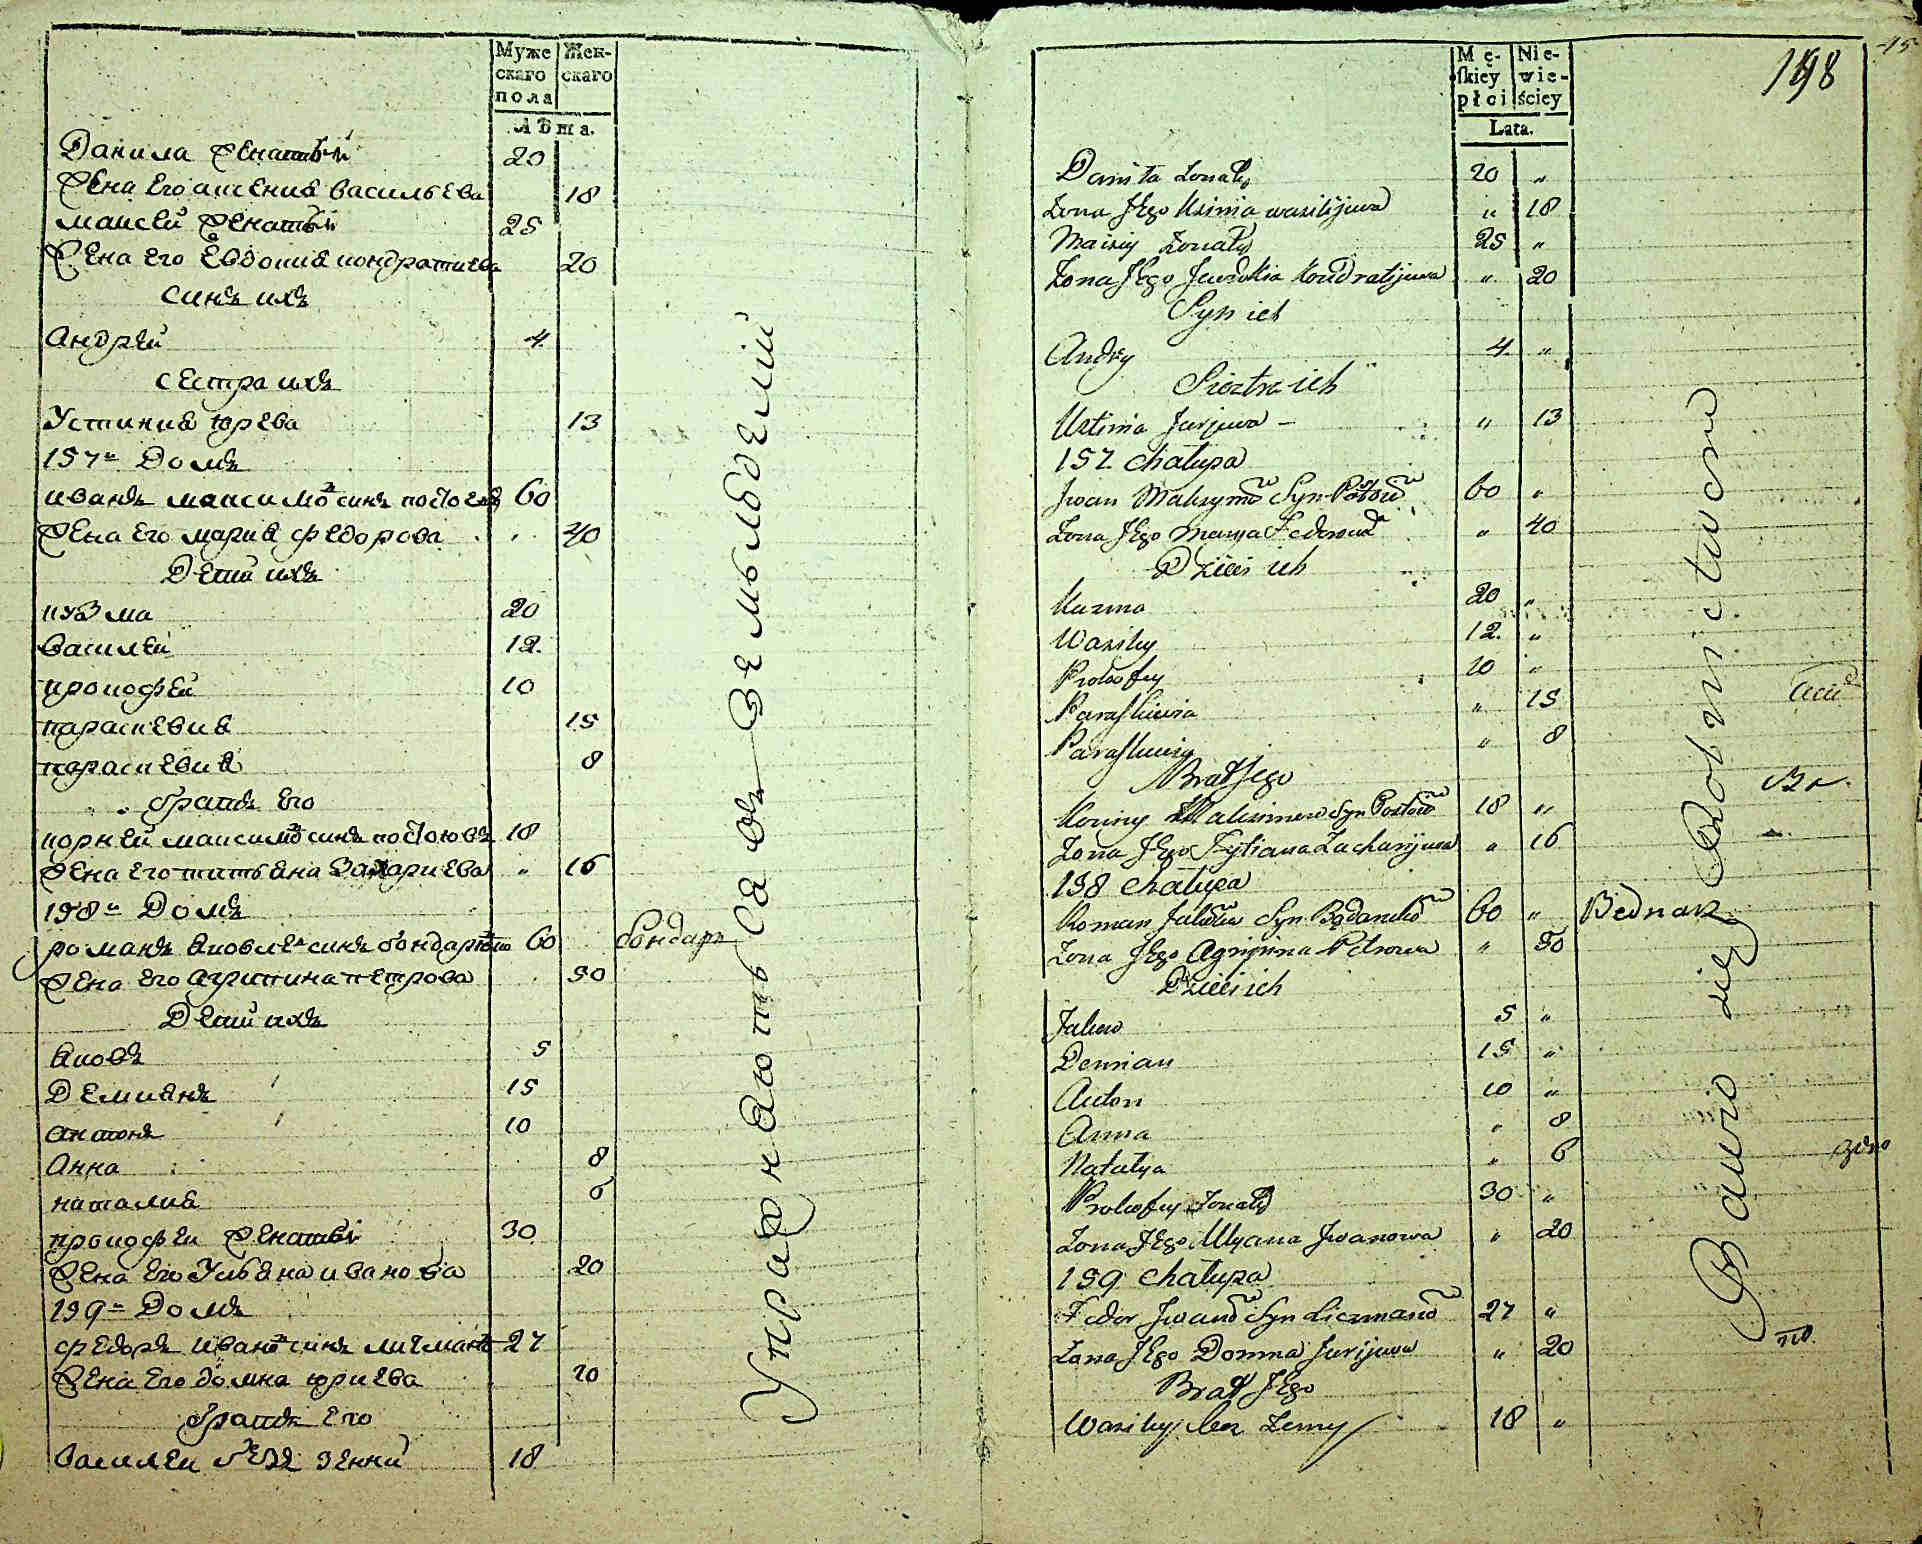 Муже
скаго
пола
Жен-
скаго
Лѣта.
Данила женатый 20
Жена Его аксения васильева 18
маисей женатый 25
Жена Его Евдокия кондратиева 20
синъ ихъ
Андрей 4
сестра ихъ
Устиния юрева 13
157й Домъ
иванъ максимовъ синъ 60
Жена Его мария федорова 40
Дети ихъ
кузма 20
василей 12.
прокофей 10
параскевия 15
параскевия 8
братъ Его
корней максимовъ синъ 18
Жена Его татьяна Захариева " 16
158й Домъ
романъ яковлевъ синъ бондаренко 60 бондарь
Жена Его агрипина петрова 50
Дети ихъ
яковъ 5
Демиянъ 15
антонъ 10
Анна 8
наталия 6
прокофей женатый 30
Жена Его Ульяна иванова 20
159й Домъ
федоръ ивановъ синъ личманъ 27
Жена Его домна юриева 20
братъ Его
василей без женний 18
Упражняються въ Земльоделии
Mę-
ſkiey
płci
Nie-
wie-
ściey
Lata.
198
Daniła Żonaty 20 "
Żona Jego Ksinia wasilijuwa " 18
Maisiy Żonaty 25 "
Żona Jego Jewdokia Kondratijuwa " 20
Syn ich
Andry 4 "
Siostra ich
Ustinia Jurjuwa – " 13
157 chałupa
Jwan Maksymow Syn 60 "
Żona Jego Marya Fedorowa " 40
Dzieci ich
Kuzma 20 "
Wasiley 12. "
Prokofey 10 "
Paraſkiewia " 15
Paraſkiewia " 8
Brat Jego
Korniy Maksimow Syn 18 "
Żona Jego Tytiana Zacharijuwa " 16
158 chałupa
Roman Jakowlew Syn 60 " Bednarz
Żona Jego Agripina Petrowa " 50
Dzieci ich
Jakow 5 "
Demian 15 "
Anton 10 "
Anna " 8
Natalya " 6
Prokofey Żonaty 30 "
Żona Jego Ulyana Jwanowa " 20
159 chałupa
Fedor Jwanow Syn Liczmanow 27 "
Żona Jego Domna Jurijuwa " 20
Brat Jego
Wasiley bez Żenny 18 "
Bawio się Rolnictwem